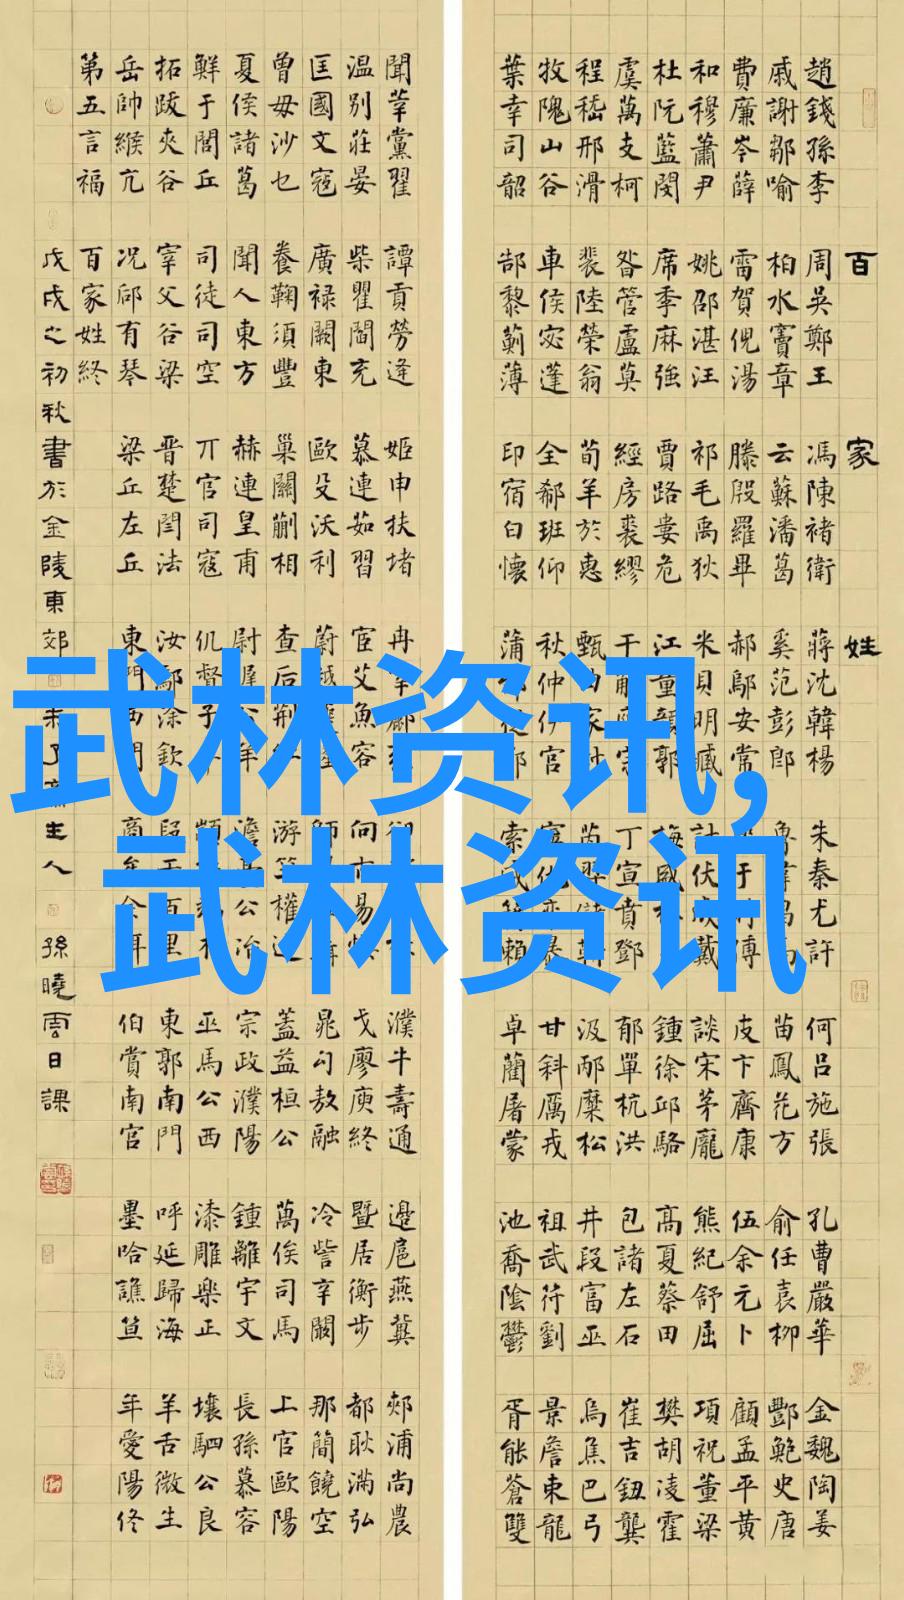 百家姓
趙錢孫李周吳鄭王馮陳褚衛蔣沈韓楊朱秦尤許何呂施張孔曹嚴華金魏陶姜
戚謝鄒喻柏水竇章云蘇潘葛奚范彭郎魯韋昌馬苗鳳花方俞任袁柳酆鮑史唐
費廉岑薛雷賀倪湯滕殷羅畢郝鄔安常于傅皮卞齊康伍余元卜顧孟平黃
和穆蕭尹姚邵湛汪祁毛禹狄米貝明臧計伏成戴談宋茅龐熊紀舒屈項祝董梁
杜阮藍閔席季麻強賈路婁危江童顏郭梅盛林鍾徐邱駱高夏蔡田樊胡凌霍
虞萬支柯昝管盧莫經房裘繆干解宗丁宣賁鄧郁單杭洪包諸左石崔吉鈕龔
程嵇邢滑裴陸榮翁荀羊於惠甄曲家封芮羿儲靳汲邴糜松井段富巫烏焦巴弓
牧隗山谷車侯宓蓬全郗班仰秋仲伊宮甯仇欒暴甘斜厲戎祖武符劉景詹束龍
葉幸司韶郜黎薊薄印宿白懷蒲從鄂索咸籍賴卓藺屠蒙池喬陰鬱胥能蒼雙
聞莘黨翟譚貢勞逄姬申扶堵冉宰酈濮牛壽通邊扈燕冀郟浦尚農
温別莊晏柴瞿閻充慕連茹習宦艾魚容向古易慎戈廖庾終暨居衡步都耿滿弘
匡國文寇廣祿闕東歐殳沃利蔚越隆師晁勾敖融冷訾辛闞那簡饒空
曾毋沙乜養鞠須豐巢關蒯相查后荊游竺權逯蓋益桓公萬俟司馬上官歐陽
夏侯諸葛聞人東方赫連皇甫尉遲公羊澹臺公冶宗政濮陽鍾離宇文長孫慕容
鮮于閭丘司徒司空丌官司寇仉督子顓木巫馬公西漆雕樂正壤駟公良
拓跋夾谷宰父谷梁晉楚閆法汝鄢涂欽段干百里東郭南門呼延歸海羊舌微生
岳帥緱亢況郈有琴梁丘左丘東門西門商牟佘佴伯賞南宮墨哈譙笪年愛陽佟
第五言福百家姓終
戊戌之初秋書於金陵東郊未了齋主人孫曉雲日課
武林资讯,
武林资讯